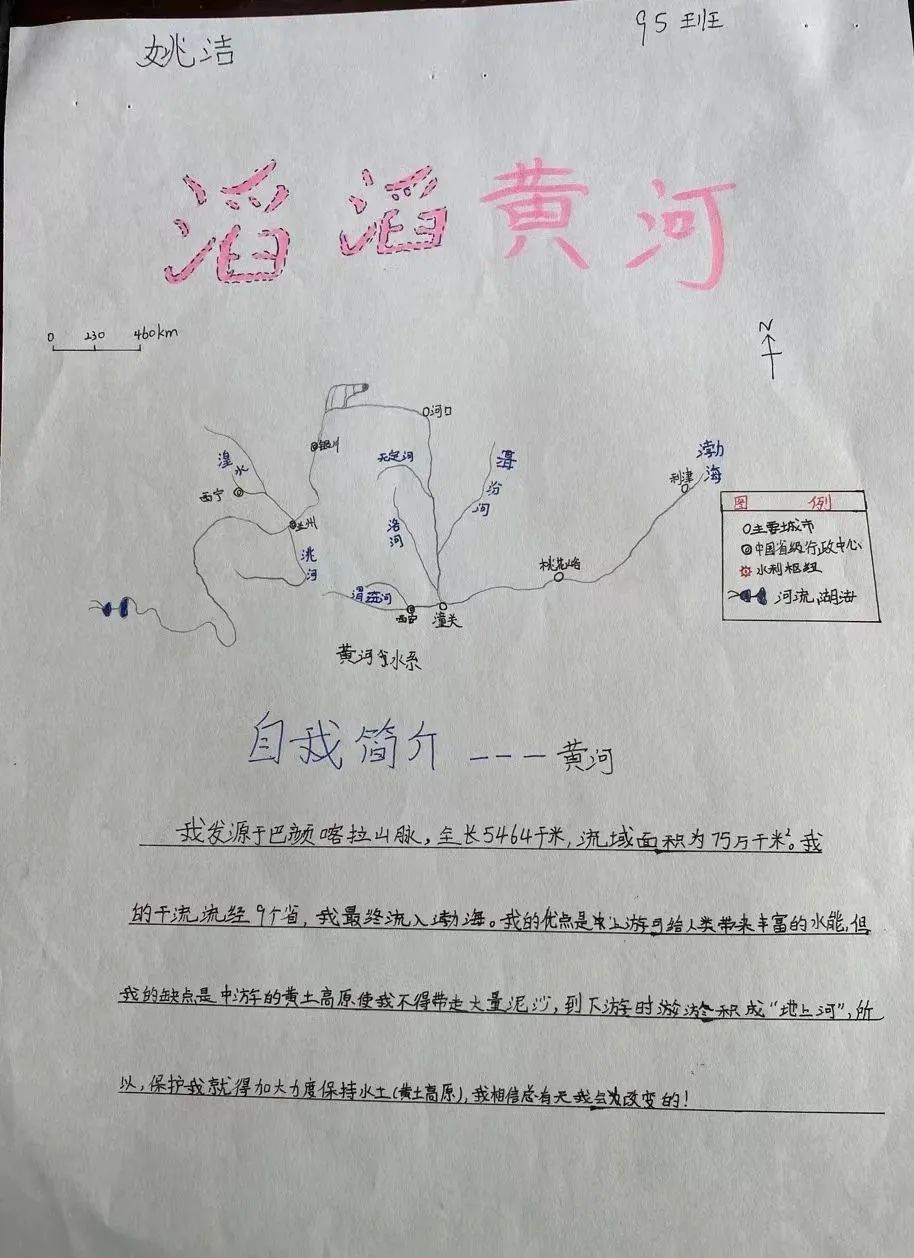 姚洁
95班
滔滔黄河
0 230 460km
N
河口
银川
湟水
西宁
无定河
汾河
渤海
利津
兰州
洛河
洮河
桃花峪
渭河
潼关
黄河水系
图 例
主要城市
中国省级行政中心
水利枢纽
河流 湖海
自我简介 ---黄河
我发源于巴颜喀拉山脉,全长5464千米,流域面积为75万千米²。我
的干流流经9个省,我最终流入渤海。我的优点是中上游可给人类带来丰富的水能,但
我的缺点是中游的黄土高原使我不得带走大量泥沙,到下游时游淤积成“地上河”,所
以,保护我就得加大力度保持水土(黄土高原),我相信总有天我会改变的!